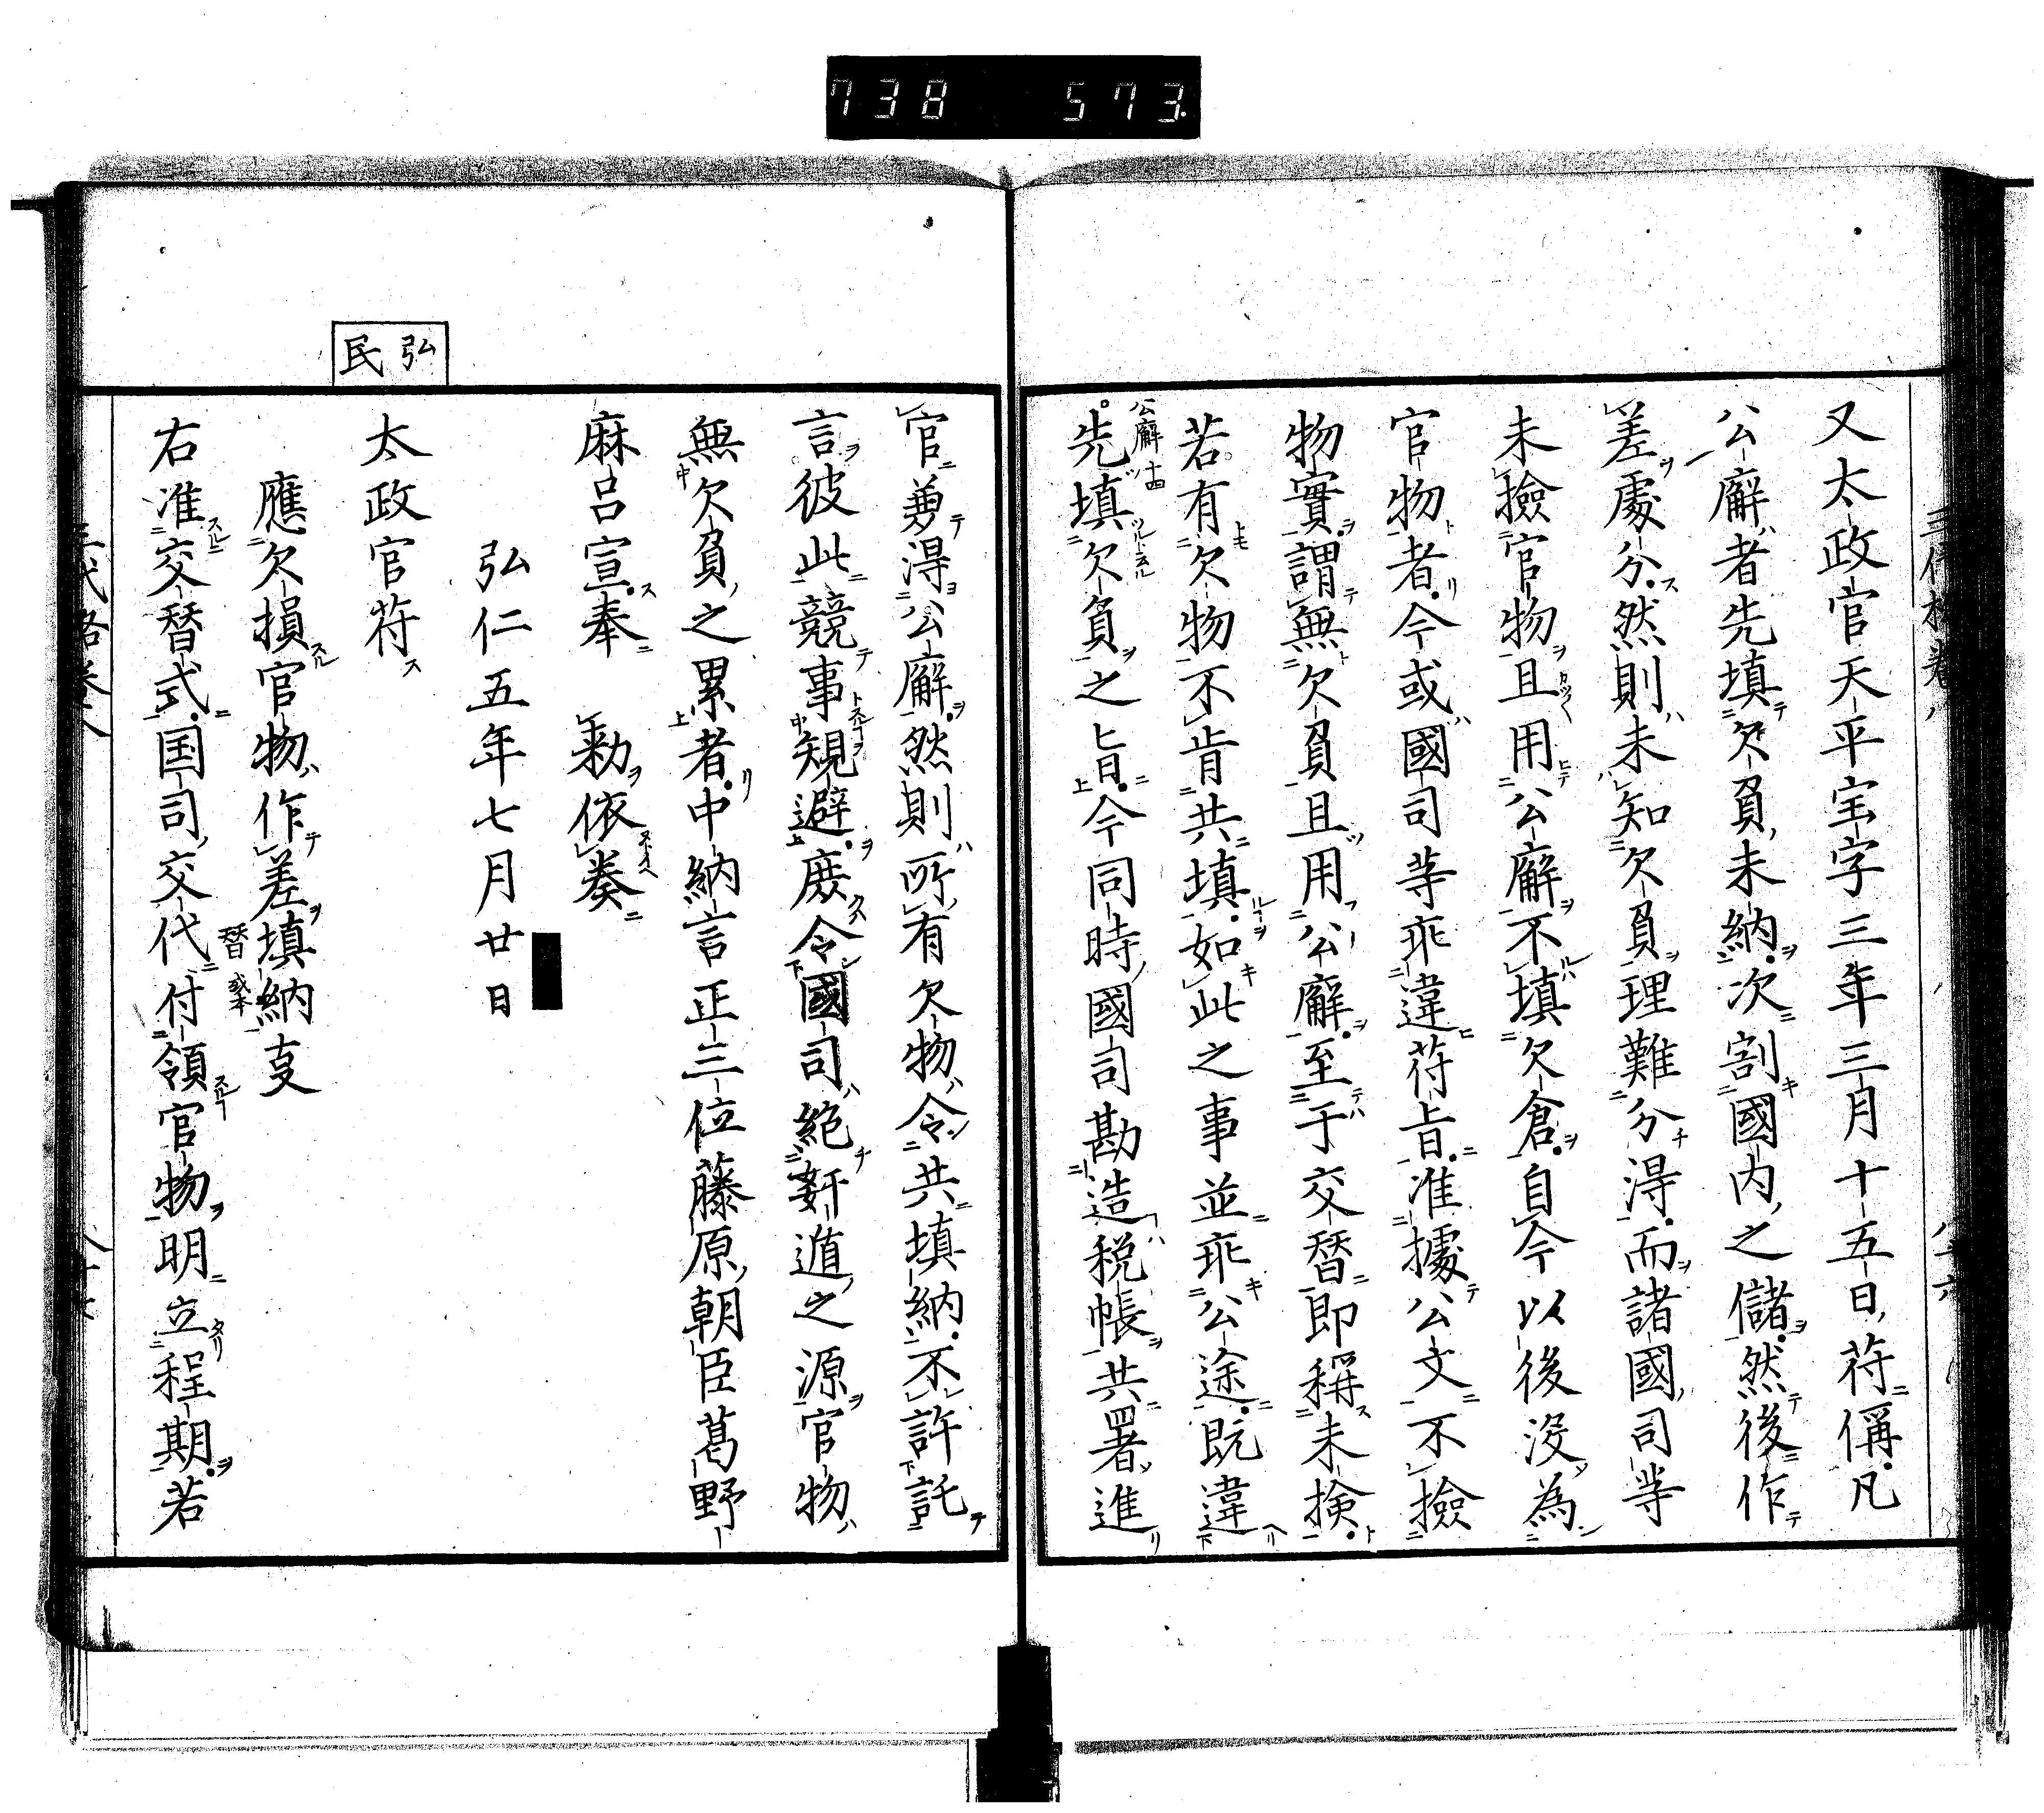 738 573
又太政官天平宝字三年三月十五日符偁凡
公廨者先填欠負未納次割國内之儲然後作
差處分然則未知欠負理難分得而諸國司等
未撿官物且用公廨不填欠倉自今以後没為
官物者今或國司等乖違符旨准據公文不撿
物實謂無欠負且用公廨至于交替即稱未検
若有欠物不肯共填如此之事並乖公途既違
公廨十四
先填欠負之旨今同時國司勘造税帳共署進
官兼得公廨然則所有欠物令共填納不許託
言彼此競事規避庶令國司絶姧遁之源官物
無欠負之累者中納言正三位藤原朝臣葛野
麻呂宣奉 勅依奏
弘仁五年七月廿日
弘民
太政官符
應欠損官物作差填納支
替或本
右准交替式国司交代付領官物明立程期若